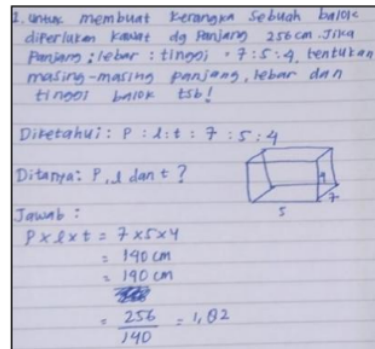 1. untuk membuat kerangka sebuah balok
diperlukan kawat dg panjang 256 cm. Jika
Panjang : lebar : tinggi = 7 : 5 : 4, tentukan
masing-masing panjang, lebar dan
tinggi balok tsb!
Diketahui : P : l : t : 7 : 5 : 4
Ditanya : P, l dan t ?
4
7
5
Jawab :
P x l x t = 7 x 5 x 4
= 140 cm
= 140 cm
= 256/140 = 1,82